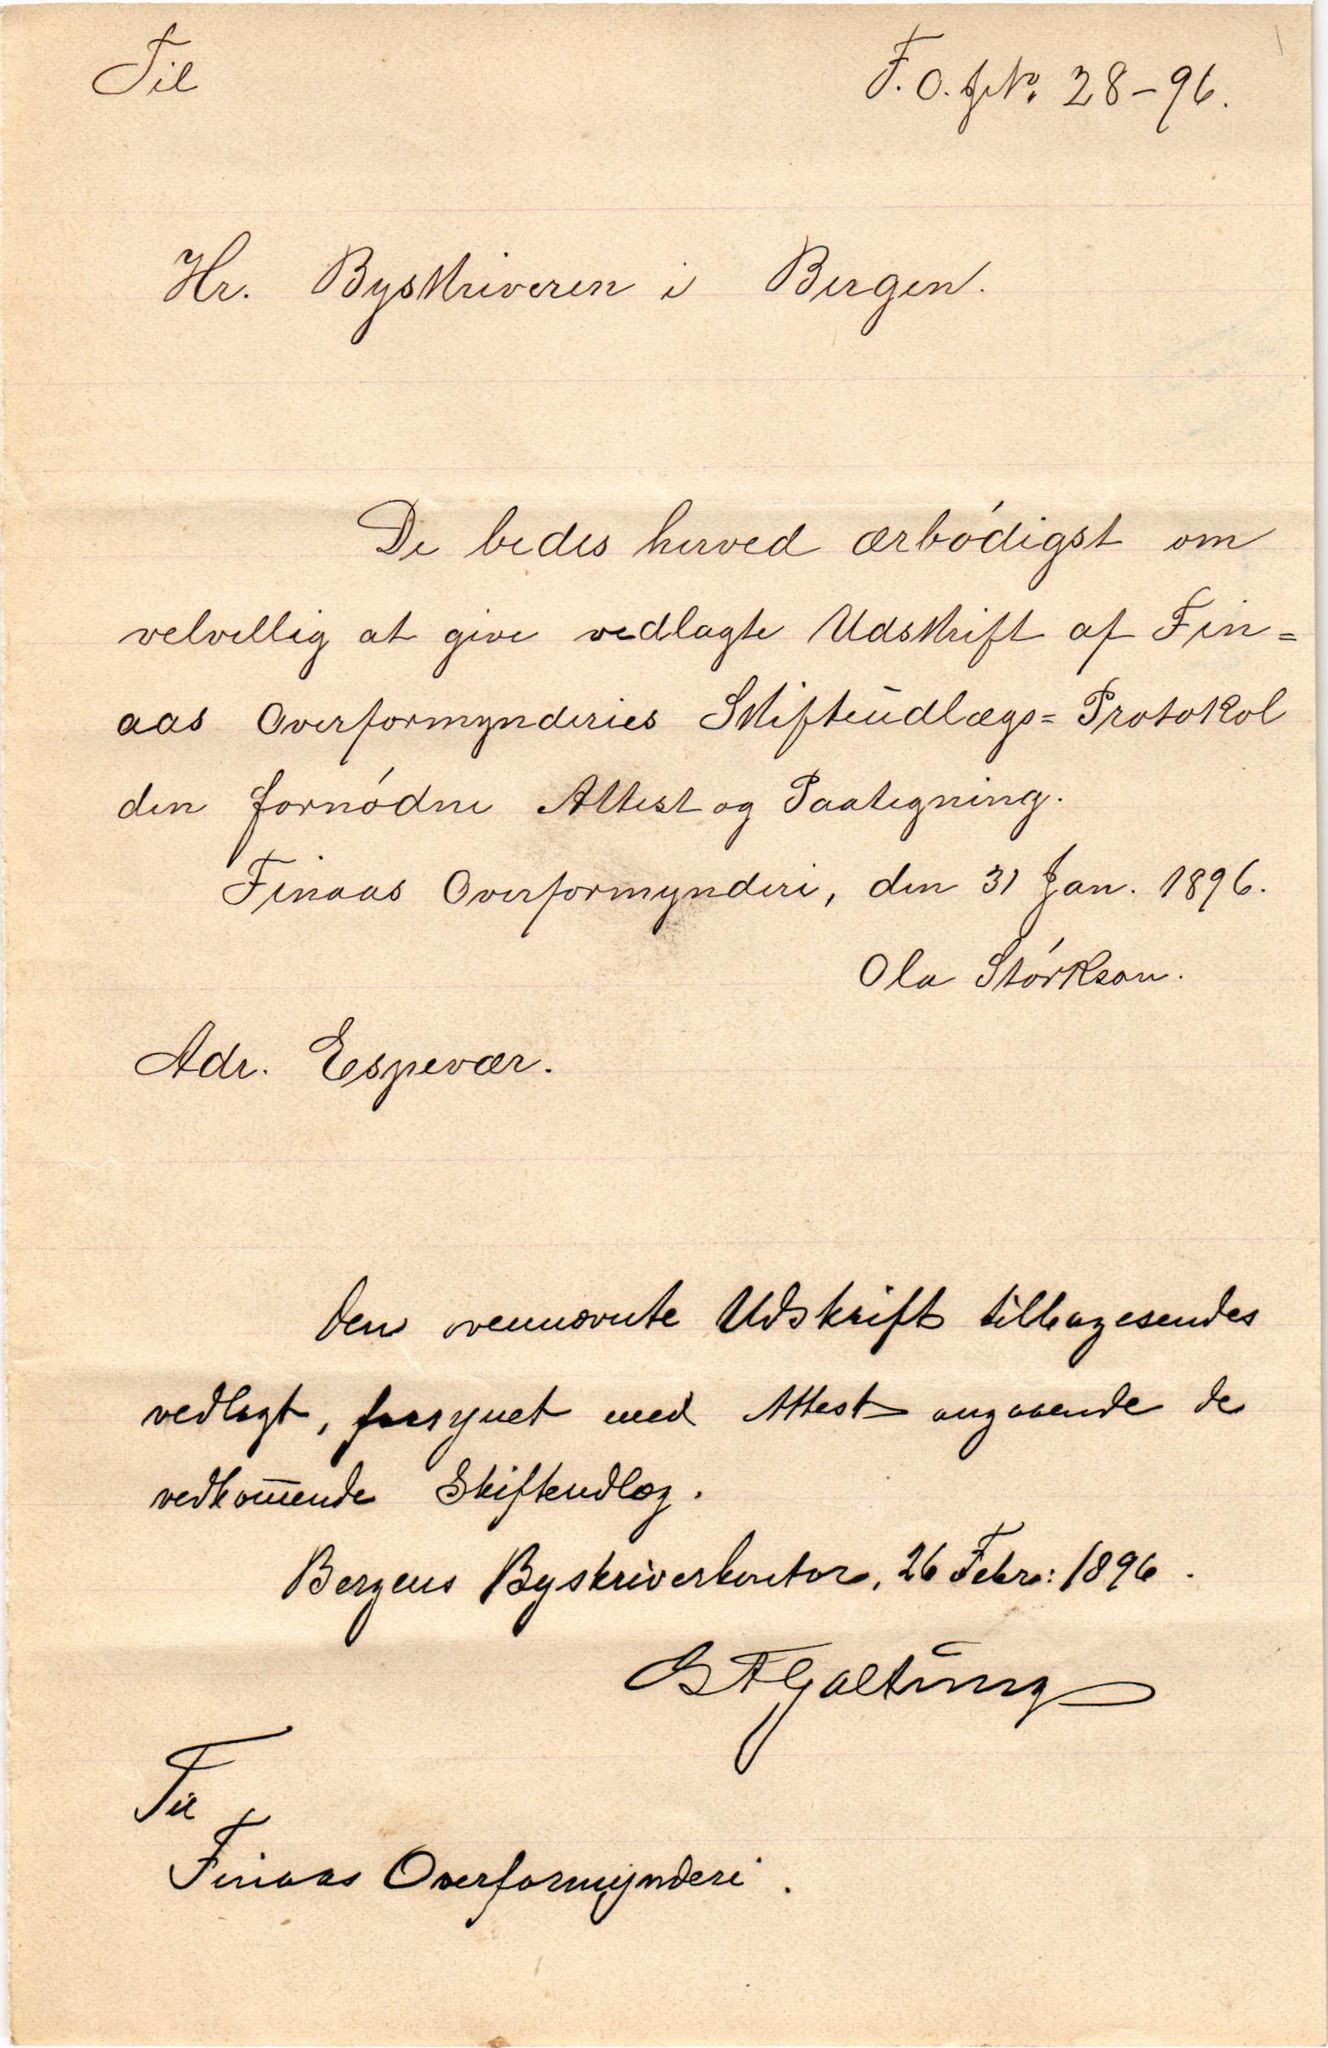 Til
F. O. J. No. 28-96.
Hr. Byskriveren i Bergen.
De bedes herved ærbódigst om
velvillig at give vedlagte Udskrift af Fin=
aas Overformynderies Skifteudlægs= Protokol
den fornódne Attest og Paategning.
Finaas Overformynderi, den 31 Jan. 1896.
Ola Stórkson.
Adr. Espevær.
Den ovennævnte Udskrift tilbagesendes
vedlagt, forsynet med Attest angaaende de
vedkom̄ende Skifteudlæg.
Bergens Byskriverkontor, 26 Febr: 1896.
Galtung
Til
Finaas Overformynderi.